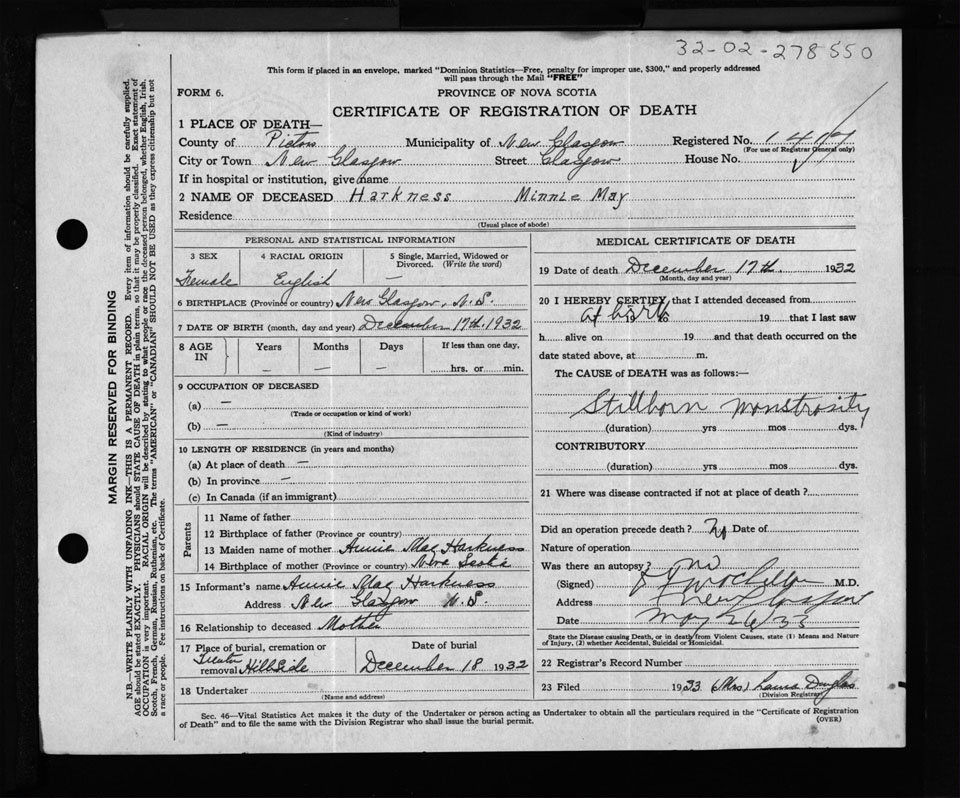 32-02-278550
This form if placed in an envelope, marked "Dominion Statistics—Free, penalty for improper use, $300," and properly addressed
will pass through the Mail "FREE"
FORM 6. PROVINCE OF NOVA SCOTIA
CERTIFICATE OF REGISTRATION OF DEATH
1 PLACE OF DEATH—
County of Pictou Municipality of New Glasgow Registered No.
(For use of Registrar General only)
City or Town New Glasgow Street Glasgow House No.
If in hospital or institution, give name
2 NAME OF DECEASED Harkness Minnie May
Residence
(Usual place of abode)
PERSONAL AND STATISTICAL INFORMATION
3 SEX 4 RACIAL ORIGIN 5 Single, Married, Widowed or
Divorced. (Write the word)
Female English —
6 BIRTHPLACE (Province or country) New Glasgow, N.S.
7 DATE OF BIRTH (month, day and year) December 17th. 1932
8 AGE IN Years Months Days If less than one day,
— — — hrs. or min.
9 OCCUPATION OF DECEASED
(a) —
(Trade or occupation or kind of work)
(b) —
(Kind of industry)
10 LENGTH OF RESIDENCE (in years and months)
(a) At place of death —
(b) In province —
(c) In Canada (if an immigrant)
Parents
11 Name of father
12 Birthplace of father (Province or country)
13 Maiden name of mother Annie Mae Harkness
14 Birthplace of mother (Province or country) Nova Scotia
15 Informant's name Annie Mae Harkness
Address New Glasgow N.S.
16 Relationship to deceased Mother
17 Place of burial, cremation or Date of burial
removal Hillside December 18 1932
18 Undertaker
(Name and address)
MEDICAL CERTIFICATE OF DEATH
19 Date of death December 17th. 1932
(Month, day and year)
20 I HEREBY CERTIFY, that I attended deceased from
at birth 19 to 19 that I last saw
h alive on 19 and that death occurred on the
date stated above, at m.
The CAUSE of DEATH was as follows:—
Stillborn monstrosity
(duration) yrs mos dys.
CONTRIBUTORY
(duration) yrs mos dys.
21 Where was disease contracted if not at place of death ?
Did an operation precede death? No Date of
Nature of operation
Was there an autopsy? no
(Signed) M.D.
Address New Glasgow
Date May 26/33
State the Disease causing Death, or in death from Violent Causes, state (1) Means and Nature
of Injury, (2) whether Accidental, Suicidal or Homicidal.
22 Registrar's Record Number
23 Filed 1933 (Mrs) Laura Douglas
(Division Registrar)
Sec. 46—Vital Statistics Act makes it the duty of the Undertaker or person acting as Undertaker to obtain all the particulars required in the "Certificate of Registration
of Death" and to file the same with the Division Registrar who shall issue the burial permit. (OVER)
MARGIN RESERVED FOR BINDING
N.B.—WRITE PLAINLY WITH UNFADING INK—THIS IS A PERMANENT RECORD. Every item of information should be carefully supplied.
AGE should be stated EXACTLY. PHYSICIANS should STATE CAUSE OF DEATH in plain terms, so that it may be properly classified. Exact statement of
OCCUPATION is very important. RACIAL ORIGIN will be described by stating to what people or race the deceased person belonged, whether English, Irish,
Scotch, French, German, Russian, Ruthenian, etc. The terms "AMERICAN" or "CANADIAN" SHOULD NOT BE USED as they express citizenship but not
a race or people. Fee instructions on back of Certificate.